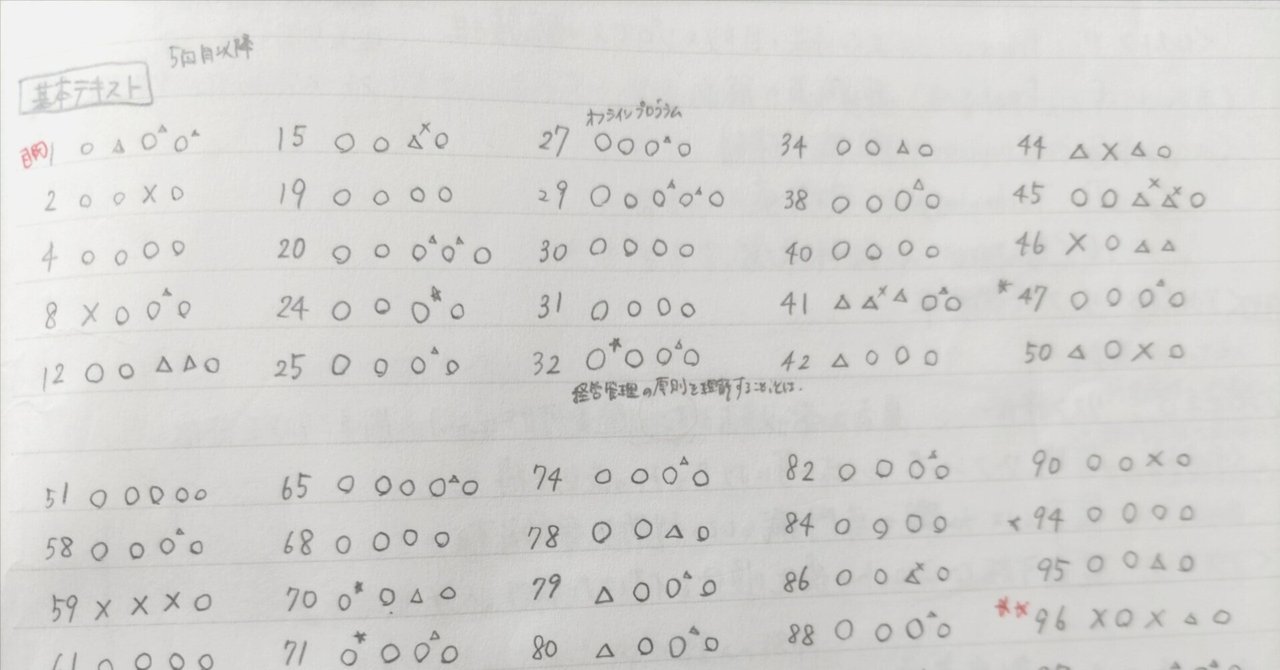 5回目以降
基本テキスト
オンラインプログラム
目的 1 ○ △ ○△ ○△ 15 ○ ○ △× ○ 27 ○ ○ ○△ ○ 34 ○ ○ △ ○ 44 △ × △ ○
2 ○ ○ × ○ 19 ○ ○ ○ ○ 29 ○ ○ ○△ ○△ ○ 38 ○ ○ ○△ ○ 45 ○ ○ △× △× ○
4 ○ ○ ○ ○ 20 ○ ○ ○△ ○△ ○ 30 ○ ○ ○ ○ 40 ○ ○ ○ ○ 46 × ○ △ △
8 × ○ ○△ ○ 24 ○ ○ ○* ○ 31 ○ ○ ○ ○ 41 △ △× △ ○△ ○ *47 ○ ○ ○△ ○
12 ○ ○ △ △ ○ 25 ○ ○ ○△ ○ 32 ○* ○ ○△ ○ 42 △ ○ ○ ○ 50 △ ○ × ○
経営管理の原則を理解することとは.
51 ○ ○ ○ ○ ○ 65 ○ ○ ○ ○△ ○ 74 ○ ○ ○△ ○ 82 ○ ○ ○△ ○ 90 ○ ○ × ○
58 ○ ○ ○△ ○ 68 ○ ○ ○ ○ 78 ○ ○ △ ○ 84 ○ ○ ○ ○ 94 ○ ○ ○ ○
59 × × × ○ 70 ○* ○ △ ○ 79 △ ○ ○△ ○ 86 ○ ○ △× ○ 95 ○ ○ △ ○
61 ○ ○ ○ ○ 71 ○* ○ ○△ ○ 80 △ ○ ○△ ○ 88 ○ ○ ○△ ○ **96 × ○ × △ ○